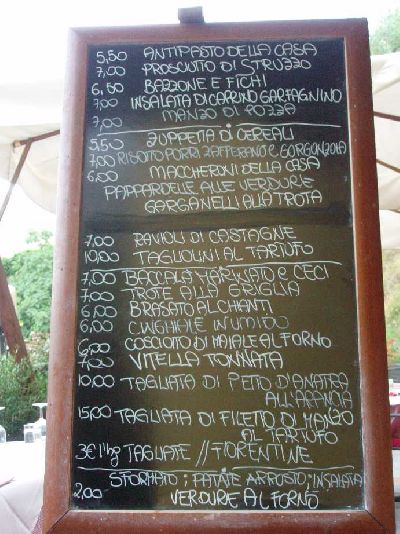 5,50 ANTIPASTO DELLA CASA
7,00 PROSCIUTTO DI STRUZZO
6,50 BAZZONE E FICHI
7,00 INSALATA DI CAPRINO GARFAGNINO
7,00 MANZO DI POZZA
5,50 ZUPPETTA DI CEREALI
7,00 RISOTTO PORRI ZAFFERANO E GORGONZOLA
6,00 MACCHERONI DELLA CASA
PAPPARDELLE ALLE VERDURE
GARGANELLI ALLA TROTA
7,00 RAVIOLI DI CASTAGNE
10,00 TAGLIOLINI AL TARTUFO
7,00 BACCALÀ MARINATO e CECI
7,00 TROTE ALLA GRIGLIA
6,00 BRASATO AL CHIANTI
6,00 CINGHIALE IN UMIDO
6,00 COSCIOTTO DI MAIALE AL FORNO
7,00 VITELLA TONNATA
10,00 TAGLIATA DI PETTO D'ANATRA
ALL'ARANCIA
15,00 TAGLIATA DI FILETTO DI MANZO
AL TARTUFO
3€ l'hg TAGLIATE // FIORENTINE
SFORMATO ; PATATE ARROSTO ; INSALATA
2,00 VERDURE AL FORNO